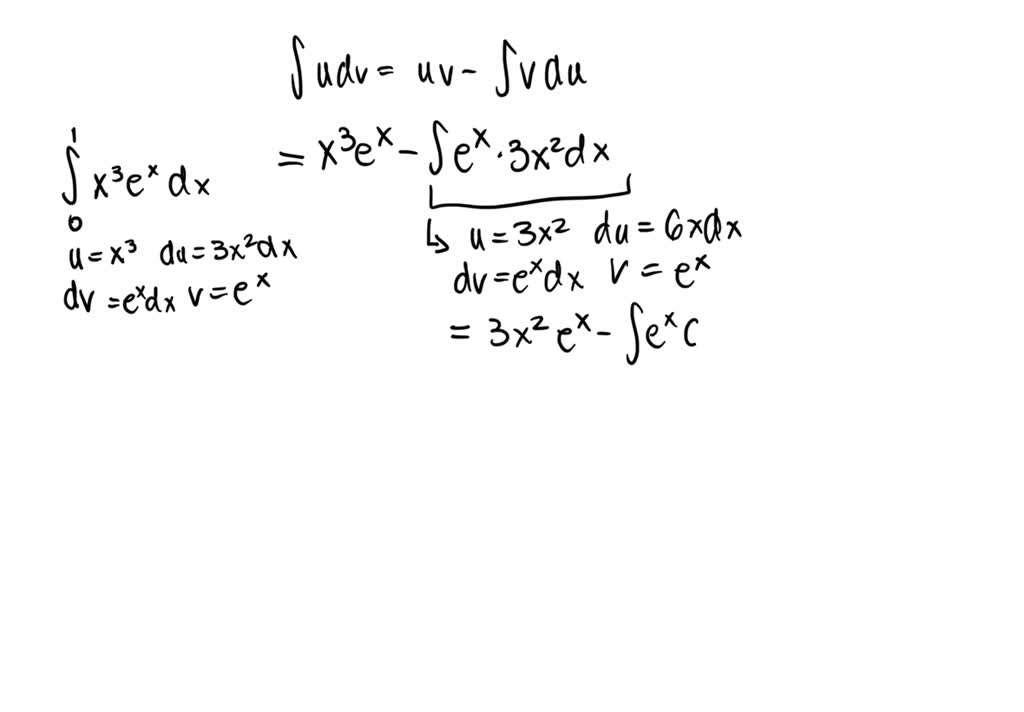 ∫udv = uv - ∫vdu
1
∫ x³eˣdx
0
= x³eˣ - ∫eˣ·3x²dx
u = x³ du = 3x²dx
dv = eˣdx v = eˣ
↳ u = 3x² du = 6xdx
dv = eˣdx v = eˣ
= 3x²eˣ - ∫eˣ c